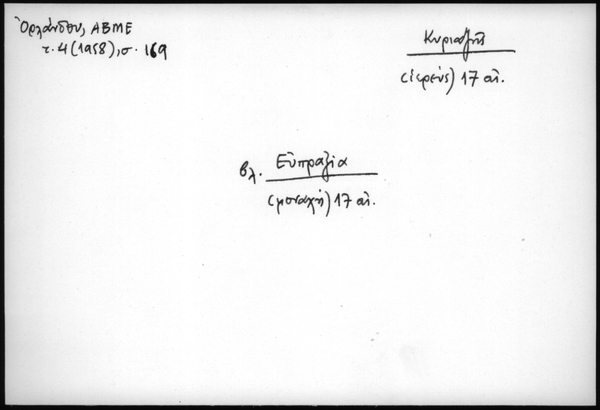 Ὀρλάνδου, ΑΒΜΕ
τ. 4 (1958), σ. 169
Κυριαζῆς
(ἱερεύς) 17 αἰ.
βλ. Εὐπραξία
(μοναχή) 17 αἰ.